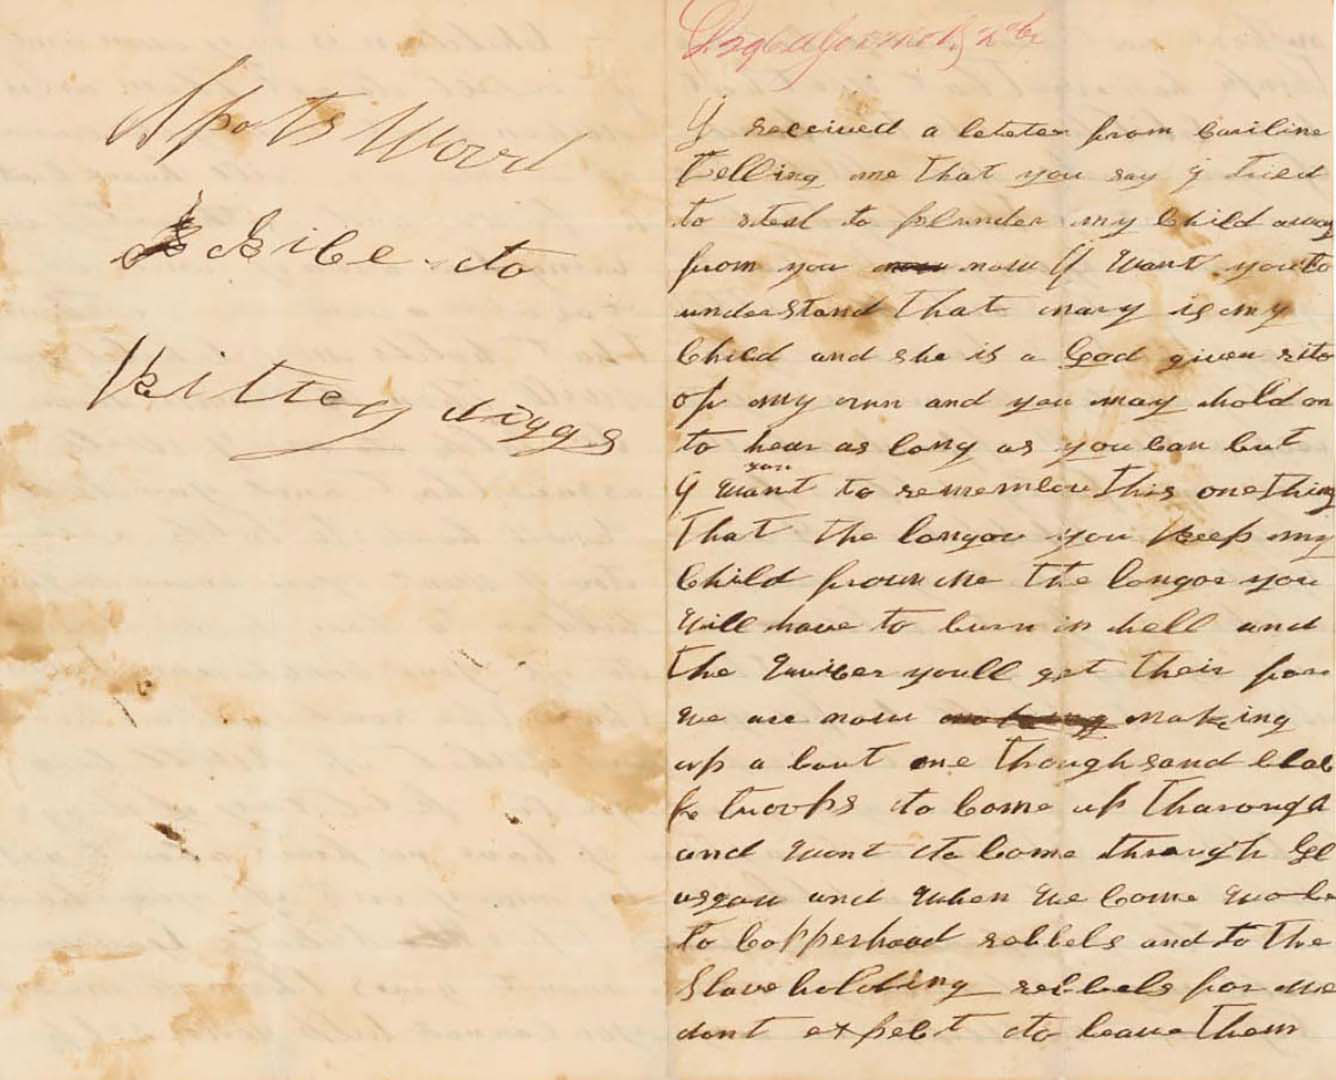 Spots Woord
Rice to
Kittey diggs
I received a leteter from Cariline
telling me that you say I tried
to steal to plunder my child away
from you now now I want you to
understand that mary is my
Child and she is a God given rite
of my own and you may hold on
to hear as long as you can but
I want you to remembor this one thing
that the longor you keep my
Child from me the longor you
will have to burn in hell and
the qwicer youll get their for
we are now making
up a bout one thoughsand blac
ke troops to Come up tharough
and wont to come through Gl
asgow and when we come wo be
to Copperhood rabbels and to the
Slaveholding rebbels for we
dont expect to leave them